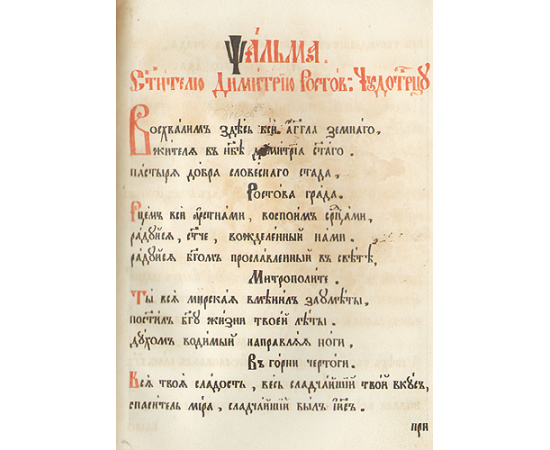 Ѱа́льма.
Ст҃и́телю Дими́трїю Росто́в: Чꙋдотво́рцꙋ
Восхва́лимъ здѣ́сь вси̑ а҆́гг҃ла земна́го,
жи́телѧ въ нб҃ѣ дими́трїа ст҃а́го.
па́стырѧ до́бра слове́снаго ста́да,
Росто́ва гра́да.
Рце́мъ вси̑ ᲂу҆стна́ми, воспои́мъ ср҃дца́ми,
ра́дꙋйсѧ, ст҃че, вожделе́нный на́ми.
ра́дꙋйсѧ бг҃омъ просла́вленный въ свѣ́тѣ,
Митрополи́те.
Ты̀ всѧ̑ мирска́ѧ вмѣни́лъ заꙋме́ты,
пости́лъ бг҃ꙋ жи́зни твоеѧ̀ лѣ́ты.
дꙋ́хомъ води́мый направлѧ́ѧ но́ги,
Въ го́рни черто́ги.
Всѧ̑ твоѧ̀ сла́дость, весь сладча́йшїй тво́й вкꙋ́съ,
спаси́тель мі́ра, сладча́йшїй бы́лъ і҆и҃с.
при